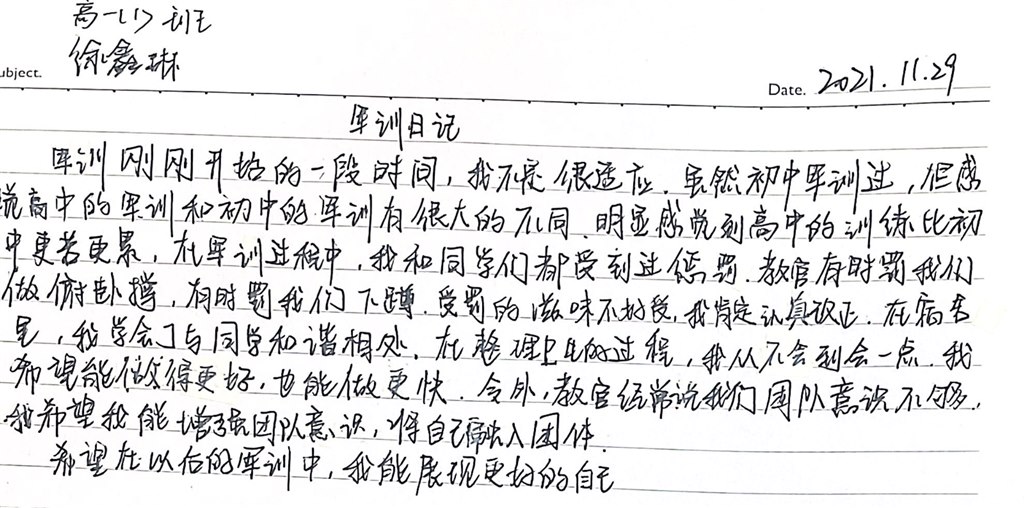 高一(1)班
徐鑫琳
ubject.
Date. 2021.11.29
军训日记
军训刚刚开始的一段时间，我不是很适应．虽然初中军训过，但感
觉高中的军训和初中的军训有很大的不同．明显感觉到高中的训练比初
中更苦更累，在军训过程中，我和同学们都受到过惩罚．教官有时罚我们
做俯卧撑，有时罚我们下蹲．受罚的滋味不好受，我肯定认真改正．在宿舍
里，我学会了与同学和谐相处．在整理内务的过程，我从不会到会一点．我
希望能做得更好，也能做更快．令外，教官经常说我们团队意识不够，
我希望我能增强团队意识，将自己融入团体
希望在以后的军训中，我能展现更好的自己